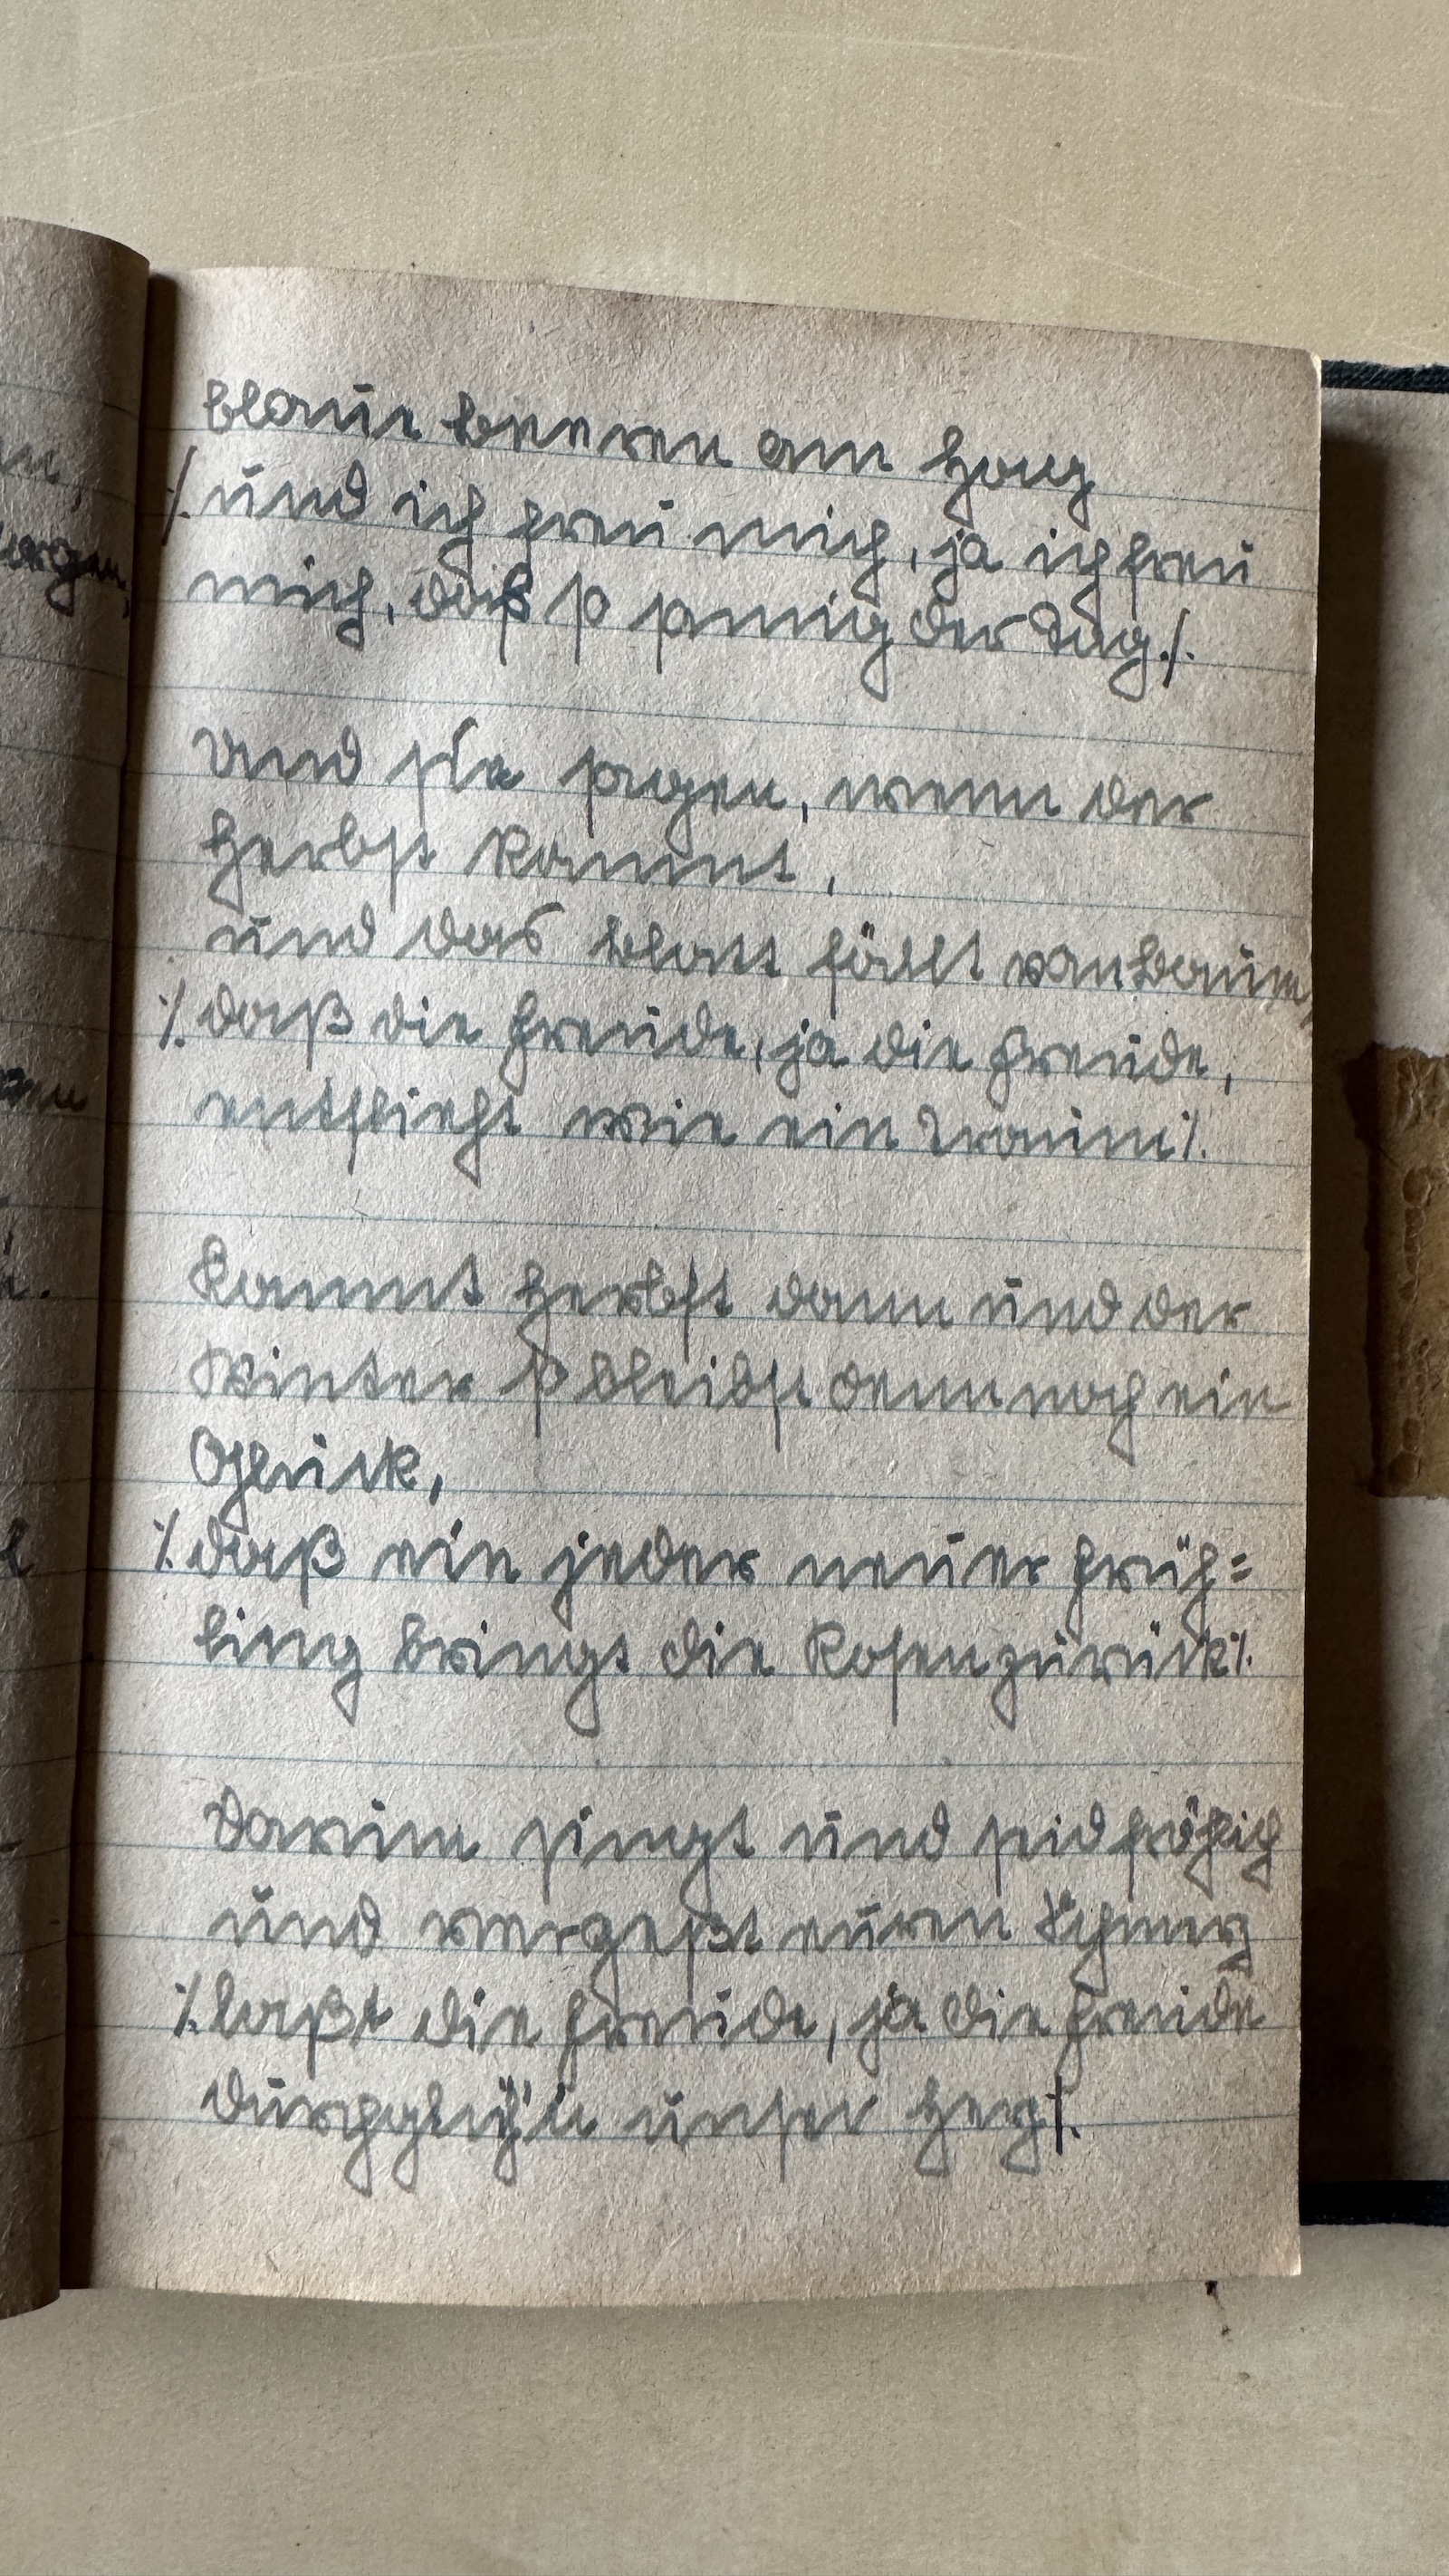 blaue Beeren am Hag
./. und ich freu mich, ja ich freu
mich, daß so sonnig der Tag ./.
Und sie sagen, wenn der
Herbst kommt,
und das Blatt fällt vom Baum,
./. daß die Freude, ja die Freude,
entflieht wie ein Traum ./.
Kommt Herbst dann und der
Winter so bleibt dennoch ein
Glück,
./. daß ein jeder neuer Früh=
ling bringt die Rosen zurück ./.
Darum singt und seid fröhlich
und vergeßt euren Schmerz
./. laßt die Freude, ja die Freude
durchglüh'n unser Herz ./.